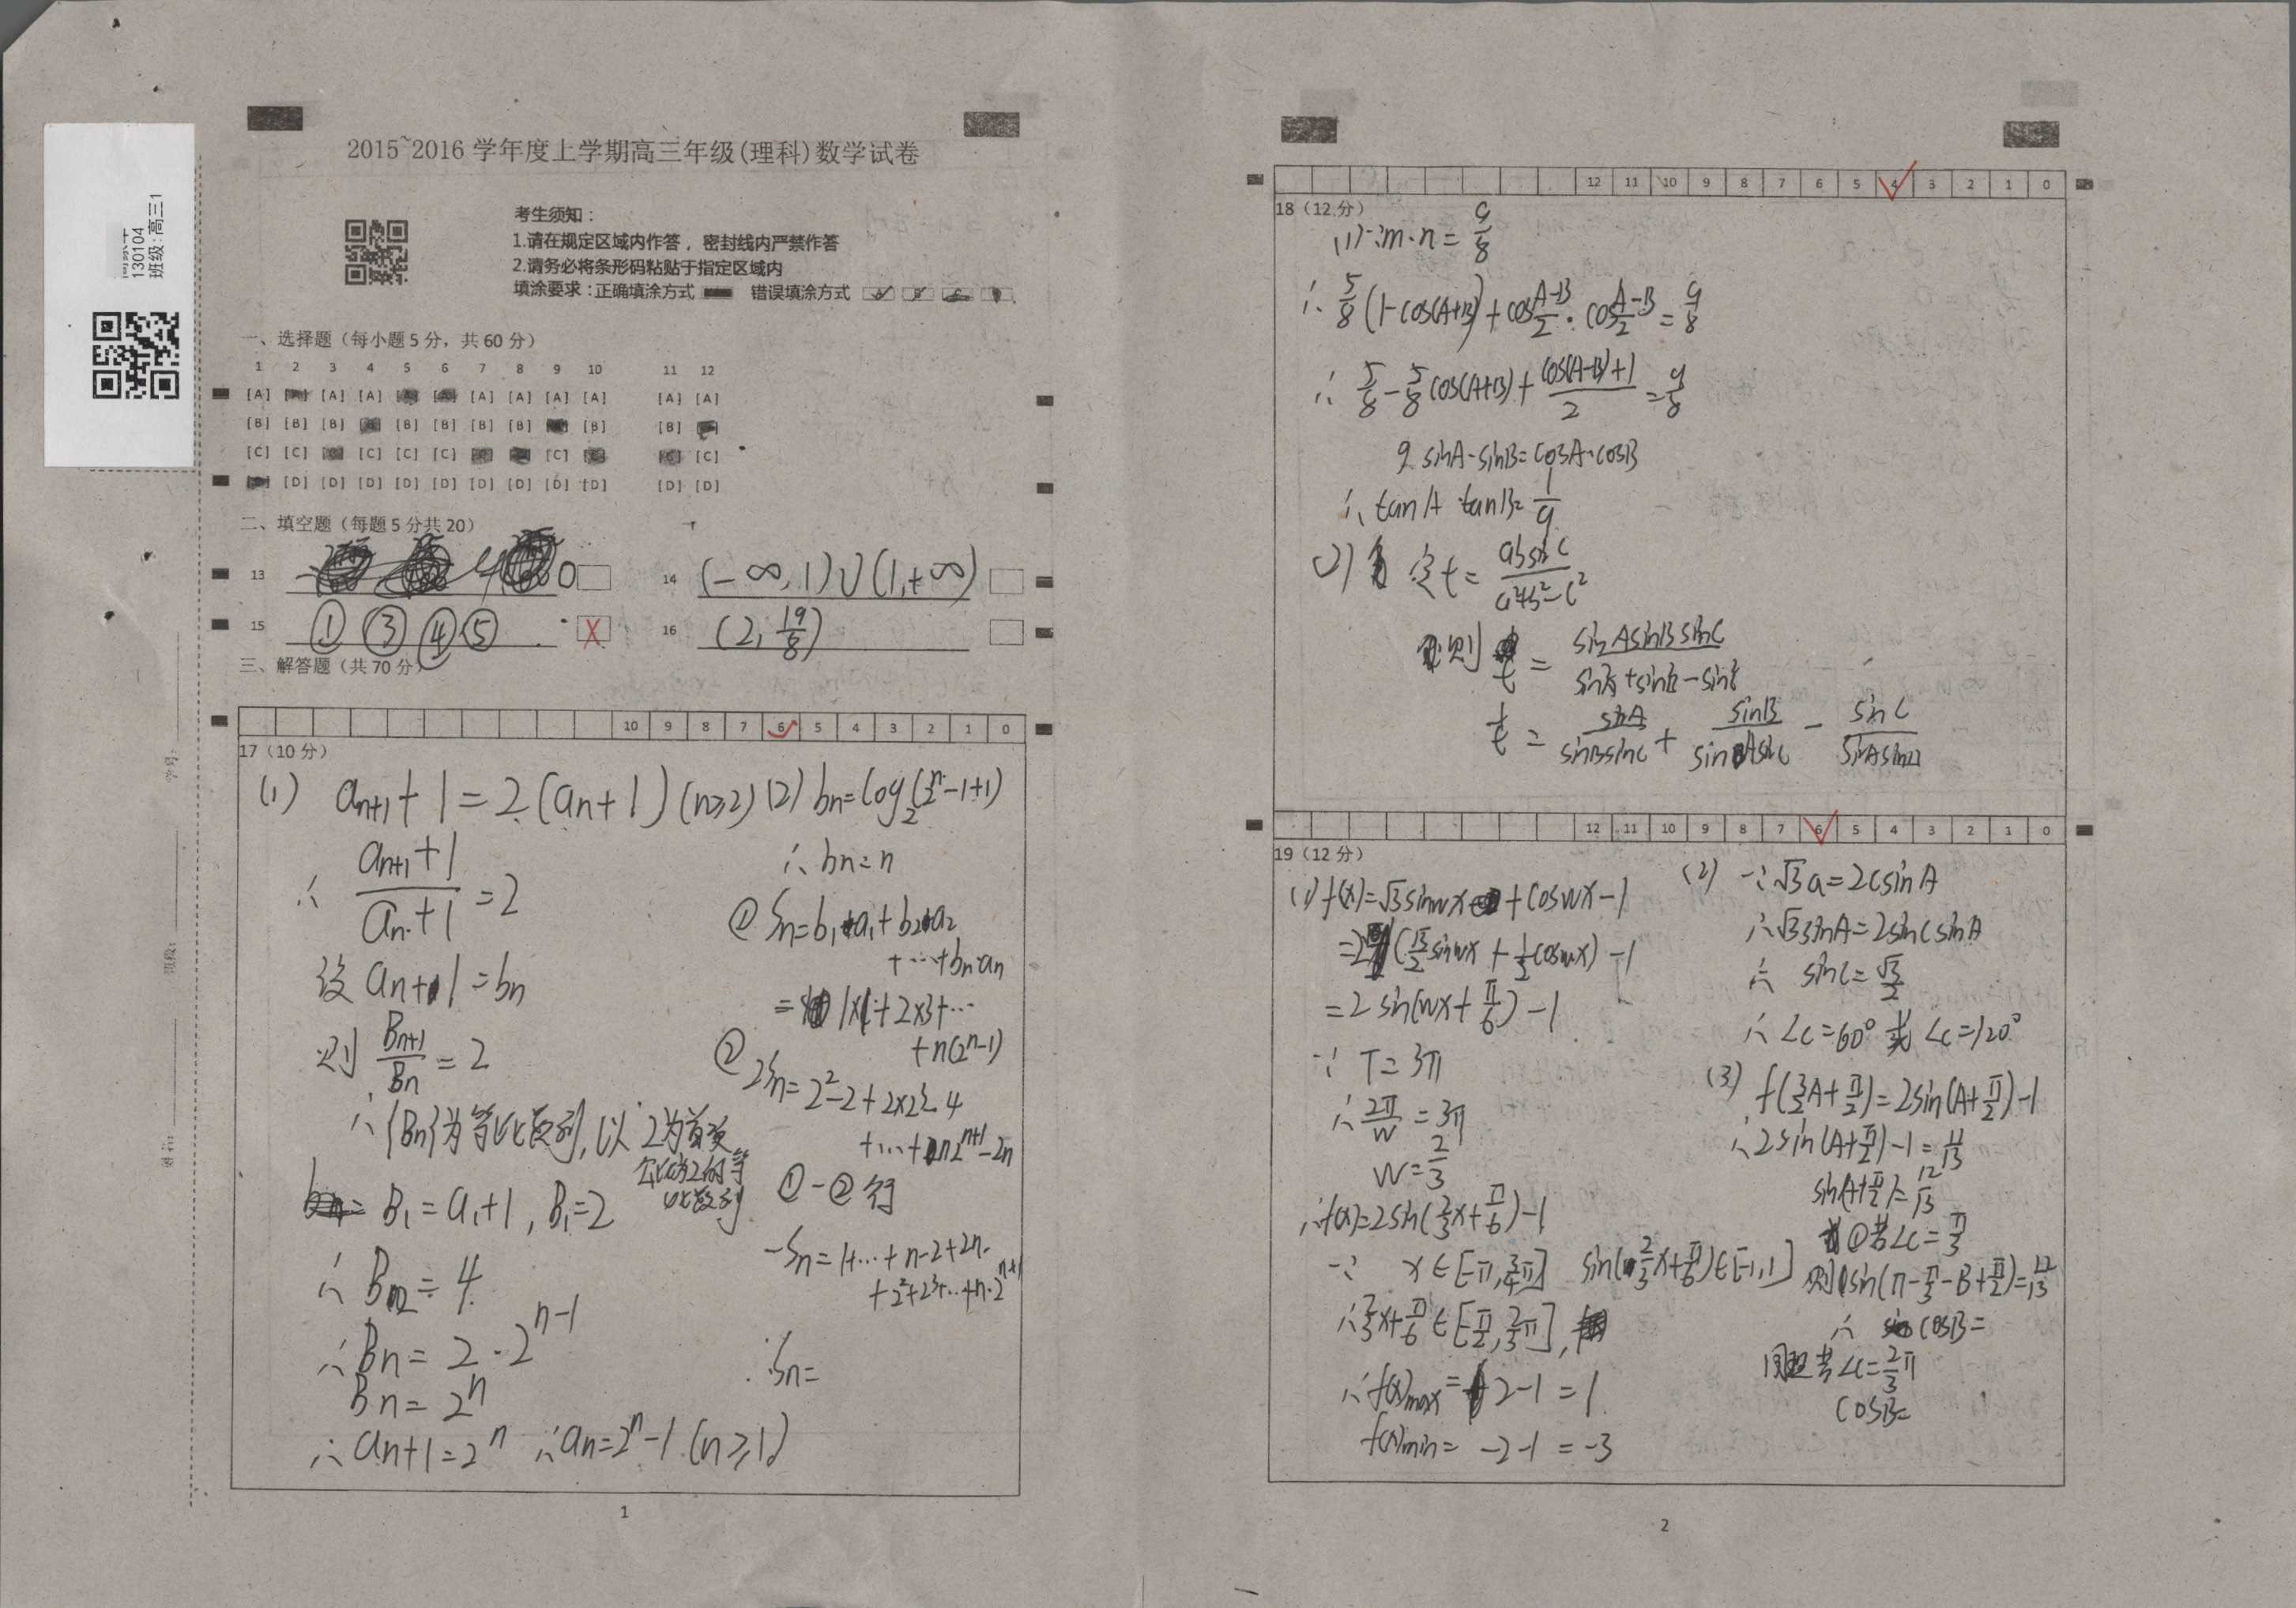 2015~2016 学年度上学期高三年级(理科)数学试卷
130104
班级:高三1
考生须知:
1.请在规定区域内作答,密封线内严禁作答
2.请务必将条形码粘贴于指定区域内
填涂要求:正确填涂方式 错误填涂方式
一、选择题(每小题5分,共60分)
1 2 3 4 5 6 7 8 9 10 11 12
[A] [A] [A] [A] [A] [A] [A] [A] [A] [A]
[B] [B] [B] [B] [B] [B] [B] [B] [B]
[C] [C] [C] [C] [C] [C] [C]
[D] [D] [D] [D] [D] [D] [D] [D] [D] [D] [D]
二、填空题(每题5分共20)
13 0
14 (-∞,1)∪(1,+∞)
15 ①③④⑤
16 (2, 19/8)
三、解答题(共70分)
10 9 8 7 6 5 4 3 2 1 0
17(10分)
(1) aₙ₊₁+1=2(aₙ+1)(n≥2)
∴ (aₙ₊₁+1)/(aₙ+1)=2
设 aₙ+1=bₙ
则 Bₙ₊₁/Bₙ=2
∴{Bₙ}为等比数列,以2为首项
公比为2的等
比数列
B₁=a₁+1, B₁=2
∴B₂=4
∴Bₙ=2·2ⁿ⁻¹
Bₙ=2ⁿ
∴aₙ+1=2ⁿ ∴aₙ=2ⁿ-1 (n≥1)
(2) bₙ=log₂(2ⁿ-1+1)
∴bₙ=n
① Sₙ=b₁·a₁+b₂·a₂
+…+bₙ·aₙ
=1×1+2×3+…
+n(2ⁿ-1)
② 2Sₙ=2²-2+2×2³-4
+…+n2ⁿ⁺¹-2n
①-②得
-Sₙ=1+…+n-2+2n-
+2²+2³+…+n·2ⁿ⁺¹
∴Sₙ=
1
12 11 10 9 8 7 6 5 4 3 2 1 0
18(12分)
(1)∵m·n=9/8
∴5/8(1-cos(A+B))+cos(A-B)/2·cos(A-B)/2=9/8
∴5/8-5/8cos(A+B)+(cos(A-B)+1)/2=9/8
9sinA·sinB=cosA·cosB
∴tanA·tanB=1/9
(2) 令t=absinC/(a²+b²-c²)
则t=sinAsinBsinC/(sin²A+sin²B-sin²C)
1/t=sinA/(sinBsinC)+sinB/(sinAsinC)-sinC/(sinAsinB)
12 11 10 9 8 7 6 5 4 3 2 1 0
19(12分)
(1)f(x)=√3sinwx+coswx-1
=2(√3/2sinwx+1/2coswx)-1
=2sin(wx+π/6)-1
∵T=3π
∴2π/w=3π
w=2/3
∴f(x)=2sin(2/3x+π/6)-1
∵x∈[-π,3/4π] sin(2/3x+π/6)∈[-1,1]
∴2/3x+π/6∈[-π/2,2/3π],
∴f(x)max=2-1=1
f(x)min=-2-1=-3
(2)∵√3a=2csinA
∴√3sinA=2sinCsinA
∴sinC=√3/2
∴∠C=60°或∠C=120°
(3) f(3/2A+π/2)=2sin(A+π/2)-1
∴2sin(A+π/2)-1=11/13
sin(A+π/2)=12/13
①若∠C=π/3
则sin(π-π/3-B+π/2)=12/13
∴cosB=
同理若∠C=2/3π
cosB=
2